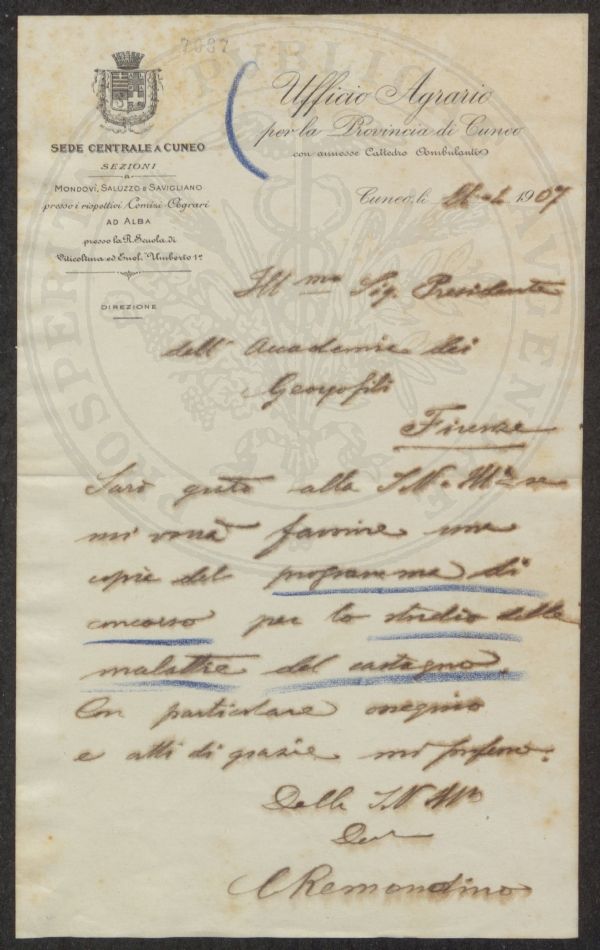 7087
SEDE CENTRALE A CUNEO
SEZIONI
A
MONDOVÌ, SALUZZO E SAVIGLIANO
presso i rispettivi Comizi Agrari
AD ALBA
presso la R. Scuola di
Viticoltura ed Enol. Umberto 1º
DIREZIONE
Ufficio Agrario
per la Provincia di Cuneo
con annesse Cattedre Ambulanti
Cuneo, li 1907
Ill mo Sig. Presidente
dell' Accademia dei
Georgofili
Firenze
Sarò grato alla S. V. Ill. ma se
mi vorrà favorire una
copia del programma di
concorso per lo studio delle
malattie del castagno.
Con particolare ossequio
e atti di grazie mi professo.
Della S V Ill
Dev
CRemondino
PUBLICAE
PROSPERITATI
AUGENDAE